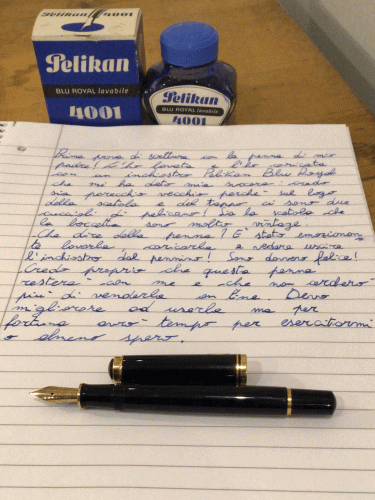 Pelikan 4001
Pelikan
BLU ROYAL lavabile
4001
Pelikan
BLU ROYAL lavabile
4001
Prima prova di scrittura con la penna di mio
padre! L'ho lavata e l'ho caricata
con un inchiostro Pelikan Blu Royal
che mi ha dato mia suocera: credo
sia parecchio vecchio perché sul logo
della scatola e del tappo ci sono due
cuccioli di pellicano! Sia la scatola che
la boccetta sono molto vintage.
Che dire della penna? E' stato emozionan
te lavarla caricarla e vedere uscire
l'inchiostro dal pennino! Sono davvero felice!
Credo proprio che questa penna
resterà con me e che non cederò
più di venderla Devo
migliorare ad usarla ma per
fortuna avrò tempo per esercitarmi
o almeno spero.